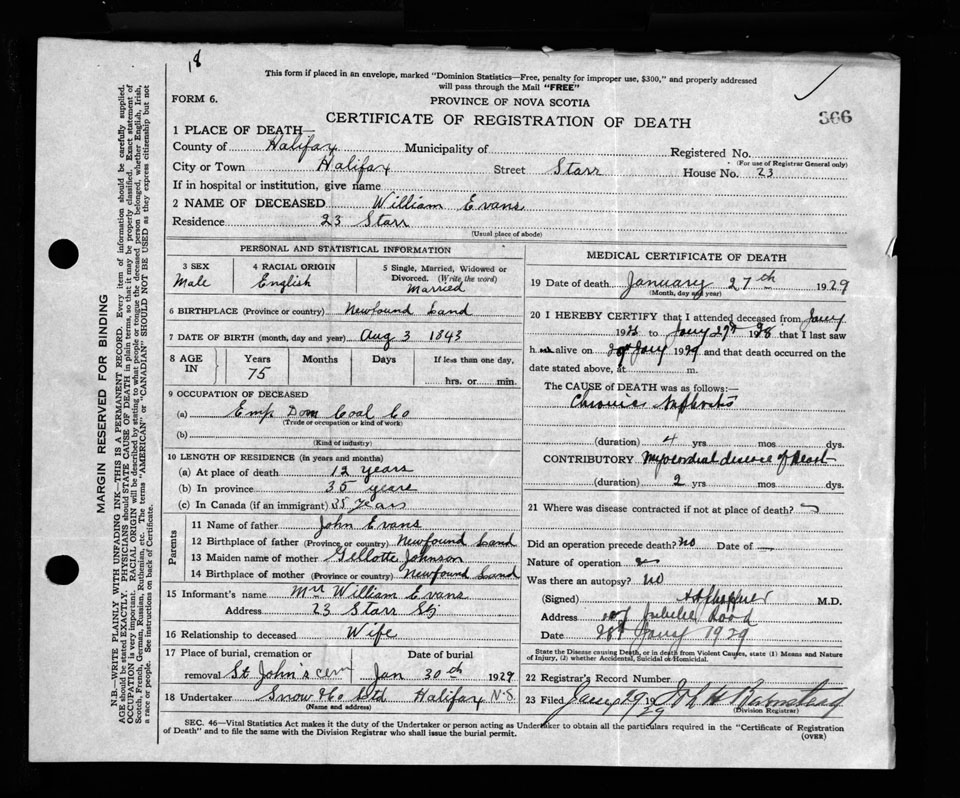 18
This form if placed in an envelope, marked "Dominion Statistics—Free, penalty for improper use, $300," and properly addressed
will pass through the Mail "FREE"
FORM 6.
PROVINCE OF NOVA SCOTIA
CERTIFICATE OF REGISTRATION OF DEATH
366
1 PLACE OF DEATH—
County of Halifax Municipality of
Registered No.
(For use of Registrar General only)
City or Town Halifax Street Starr House No. 23
If in hospital or institution, give name
2 NAME OF DECEASED William Evans
Residence 23 Starr
(Usual place of abode)
PERSONAL AND STATISTICAL INFORMATION
3 SEX
Male
4 RACIAL ORIGIN
English
5 Single, Married, Widowed or
Divorced. (Write the word)
Married
6 BIRTHPLACE (Province or country) Newfound Land
7 DATE OF BIRTH (month, day and year) Aug 3 1843
8 AGE IN
Years Months Days If less than one day,
75
hrs. or min.
9 OCCUPATION OF DECEASED
(a) Emp Dom Coal Co
(Trade or occupation or kind of work)
(b)
(Kind of industry)
10 LENGTH OF RESIDENCE (in years and months)
(a) At place of death 12 years
(b) In province 35 years
(c) In Canada (if an immigrant) 35 years
Parents
11 Name of father John Evans
12 Birthplace of father (Province or country) Newfound Land
13 Maiden name of mother Gellotte Johnson
14 Birthplace of mother (Province or country) Newfound Land
15 Informant's name Mrs William Evans
Address 23 Starr St
16 Relationship to deceased Wife
17 Place of burial, cremation or Date of burial
removal St John's cem Jan 30th 1929
18 Undertaker Snow & Co Ltd Halifax N.S.
(Name and address)
MEDICAL CERTIFICATE OF DEATH
19 Date of death January 27th 1929
(Month, day and year)
20 I HEREBY CERTIFY that I attended deceased from Jany
19 to Jany 27th 19 that I last saw
h alive on Jany 1929 and that death occurred on the
date stated above, at m.
The CAUSE of DEATH was as follows:—
Chronic Nephritis
(duration) 4 yrs mos dys.
CONTRIBUTORY Myocardial disease of Heart
(duration) 2 yrs mos dys.
21 Where was disease contracted if not at place of death?
Did an operation precede death? No Date of —
Nature of operation
Was there an autopsy? No
(Signed) M.D.
Address Jubilee Road
Date 28th Jany 1929
State the Disease causing Death, or in death from Violent Causes, state (1) Means and Nature
of Injury, (2) whether Accidental, Suicidal or Homicidal.
22 Registrar's Record Number
23 Filed Jany 29 1929
(Division Registrar)
SEC. 46—Vital Statistics Act makes it the duty of the Undertaker or person acting as Undertaker to obtain all the particulars required in the "Certificate of Registration
of Death" and to file the same with the Division Registrar who shall issue the burial permit.
(OVER)
MARGIN RESERVED FOR BINDING
N.B.—WRITE PLAINLY WITH UNFADING INK—THIS IS A PERMANENT RECORD. Every item of information should be carefully supplied.
AGE should be stated EXACTLY. PHYSICIANS should STATE CAUSE OF DEATH in plain terms, so that it may be properly classified. Exact statement of
OCCUPATION is very important. RACIAL ORIGIN will be described by stating to what people or tongue the deceased person belonged, whether English, Irish,
Scotch, French, German, Russian, Ruthenian, etc. The terms "AMERICAN" or "CANADIAN" SHOULD NOT BE USED as they express citizenship but not
a race or people. See instructions on back of Certificate.